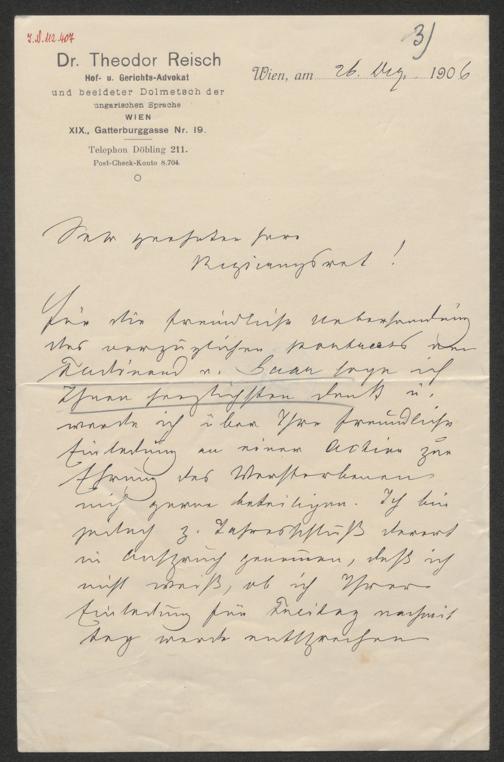 J.N. 112.407
3)
Dr. Theodor Reisch
Hof- u. Gerichts-Advokat
und beeideter Dolmetsch der
ungarischen Sprache
WIEN
XIX., Gatterburggasse Nr. 19.
Telephon Döbling 211.
Post-Check-Konto 8.704.
Wien, am 26. Dez. 1906
Sehr geehrter Herr
Regierungsrat!
Für die freundliche Uebersendung
des vorzüglichen Portraits von
Ferdinand v. Saar sage ich
Ihnen herzlichsten Dank u.
werde ich über Ihre freundliche
Einladung an einer Action zur
Ehrung des Verstorbenen
mich gerne beteiligen. Ich bin
jedoch z. Jahresschluß derart
in Anspruch genommen, daß ich
nicht weiß, ob ich Ihrer
Einladung für Freitag nachmit
tag werde entsprechen